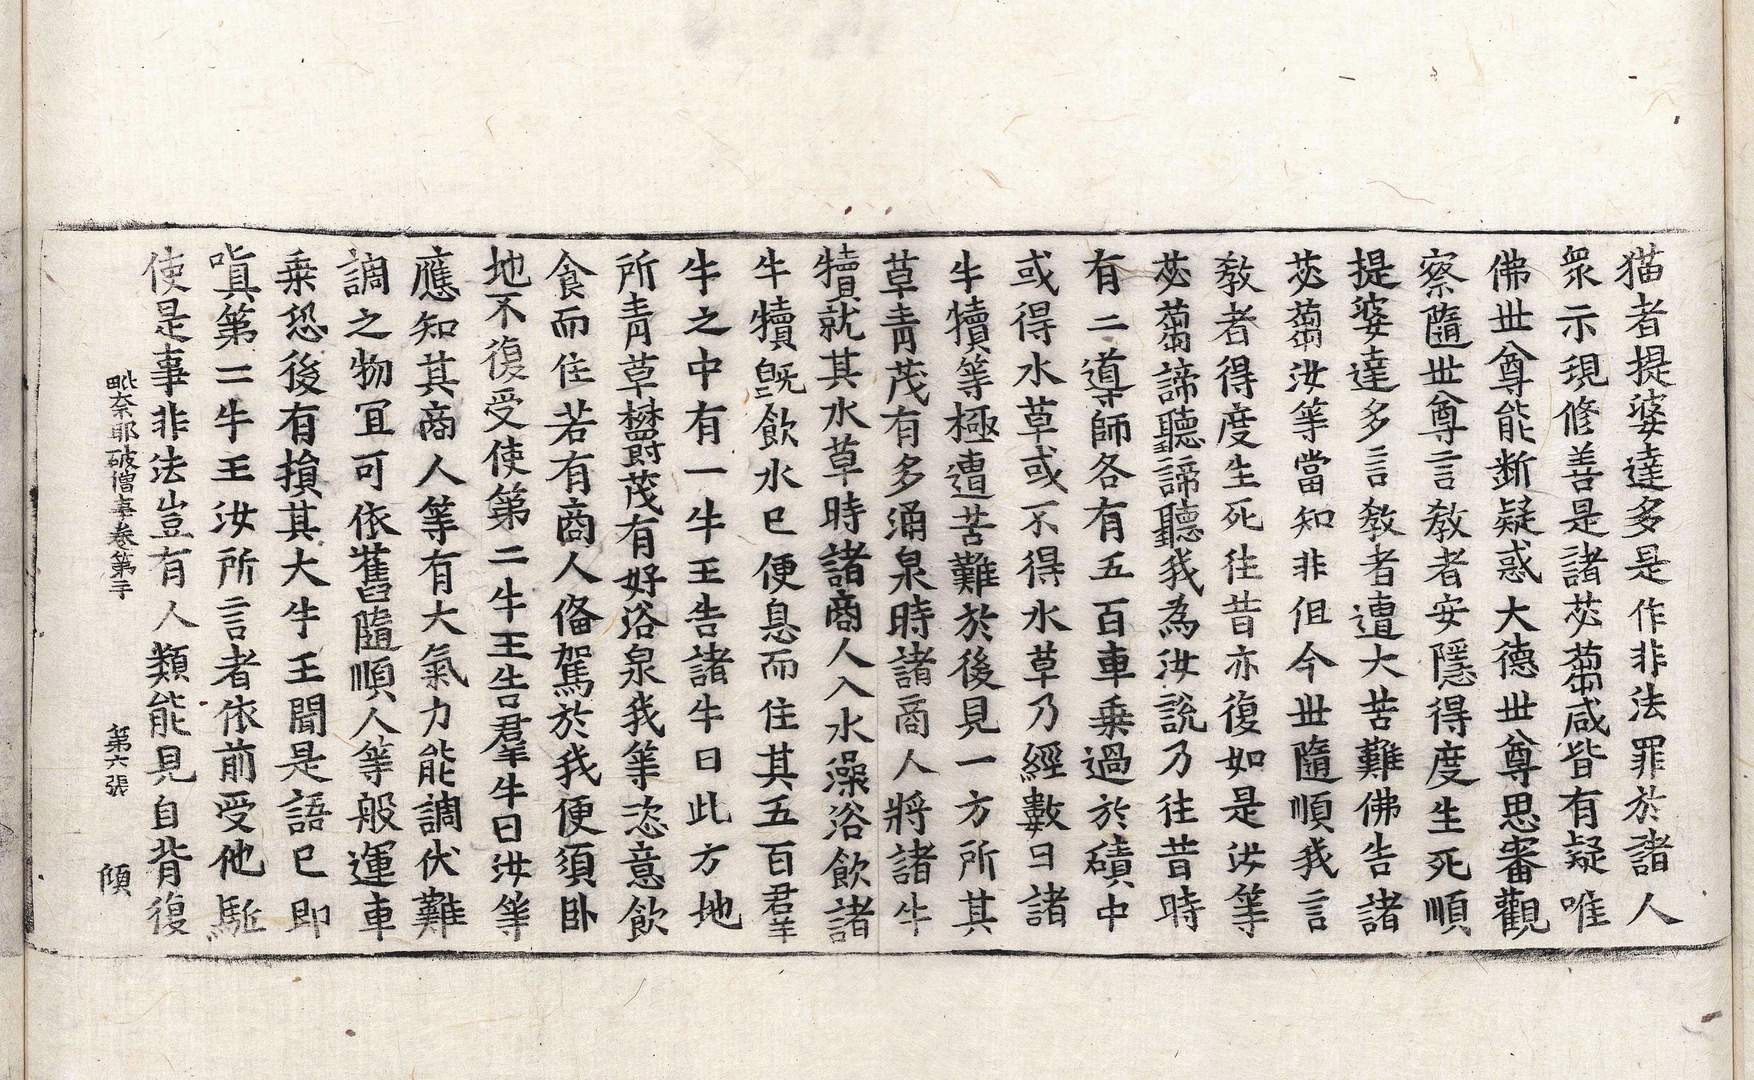 猫者提婆達多是作非法罪於諸人
衆示現修善是諸苾蒭咸皆有疑唯
佛世尊能斷疑惑大德世尊思審觀
察隨世尊言教者安隱得度生死順
提婆達多言教者遭大苦難佛告諸
苾蒭汝等當知非但今世隨順我言
教者得度生死往昔亦復如是汝等
苾蒭諦聽諦聽我為汝說乃往昔時
有二導師各有五百車乗過於磧中
或得水草或不得水草乃經數日諸
牛犢等極遭苦難於後見一方所其
草青茂有多涌泉時諸商人將諸牛
犢就其水草時諸商人入水澡浴飲諸
牛犢旣飲水已便息而住其五百羣
牛之中有一牛王告諸牛曰此方地
所青草欝茂有好浴泉我等恣意飲
食而住若有商人俻駕於我便須卧
地不復受使第二牛王告羣牛曰汝等
應知其商人等有大氣力能調伏難
調之物冝可依舊隨順人等般運車
乗恐後有損其大牛王聞是語已即
嗔第二牛王汝所言者依前受他駈
使是事非法豈有人類能見自背復
毗奈耶破僧事卷第二十 第六張 傾